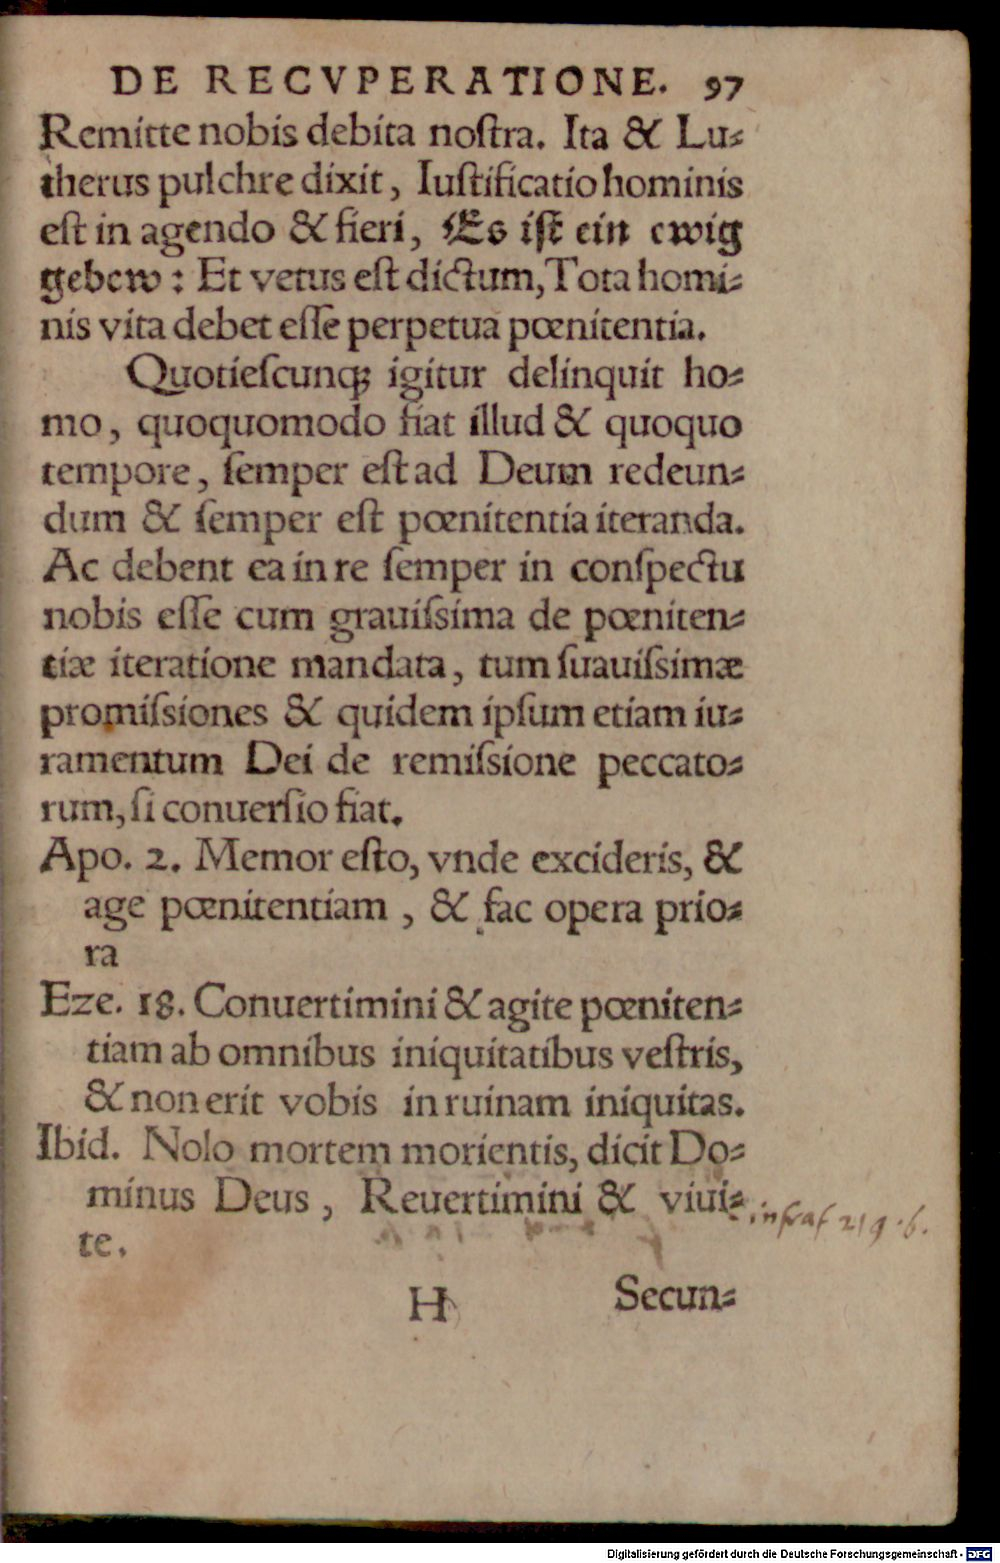 DE RECVPERATIONE. 97
Remitte nobis debita noſtra. Ita & Lu⸗
therus pulchre dixit, Iuſtificatio hominis
eſt in agendo & fieri, Es iſt ein ewig
gebew: Et vetus eſt dictum, Tota homi⸗
nis vita debet eſſe perpetua pœnitentia.
Quotieſcunqꝫ igitur delinquit ho⸗
mo, quoquomodo fiat illud & quoquo
tempore, ſemper eſt ad Deum redeun⸗
dum & ſemper eſt pœnitentia iteranda.
Ac debent ea in re ſemper in conſpectu
nobis eſſe cum grauiſsima de pœniten⸗
tiæ iteratione mandata, tum ſuauiſsimæ
promiſsiones & quidem ipſum etiam iu⸗
ramentum Dei de remiſsione peccato⸗
rum, ſi conuerſio fiat.
Apo. 2. Memor eſto, vnde excideris, &
age pœnitentiam, & fac opera prio⸗
ra
Eze. 18. Conuertimini & agite pœniten⸗
tiam ab omnibus iniquitatibus veſtris,
& non erit vobis in ruinam iniquitas.
Ibid. Nolo mortem morientis, dicit Do⸗
minus Deus, Reuertimini & viui⸗
te.
219.b.
H Secun⸗
Digitalisierung gefördert durch die Deutsche Forschungsgemeinschaft - DFG